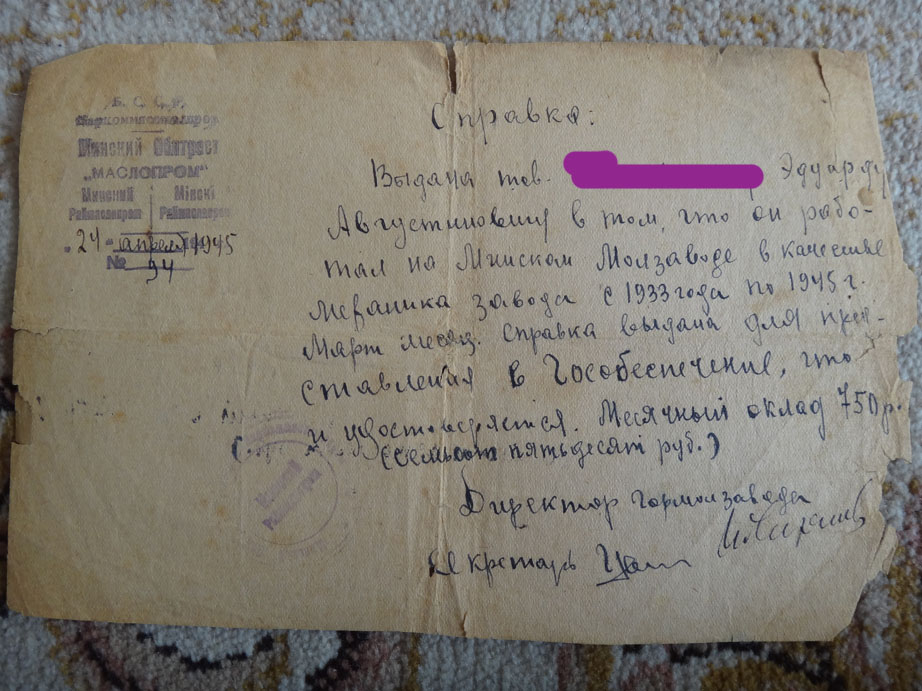 Б. С. С. Р.
Минский Облтрест
„МАСЛОПРОМ“
Минский Мінскі
Раймаслопром Раймаслопром
„24“ апреля 1945
№ 94
Справка:
Выдана тов. Эдуарду
Августиновичу в том, что он рабо-
тал на Минском Молзаводе в качестве
механика завода с 1933 года по 1945 г.
Март месяц. Справка выдана для пред-
ставления в Гособеспечение, что
и удостоверяется. Месячный оклад 750 р.
(семьсот пятьдесят руб.)
Директор гормолзавода
Секретарь